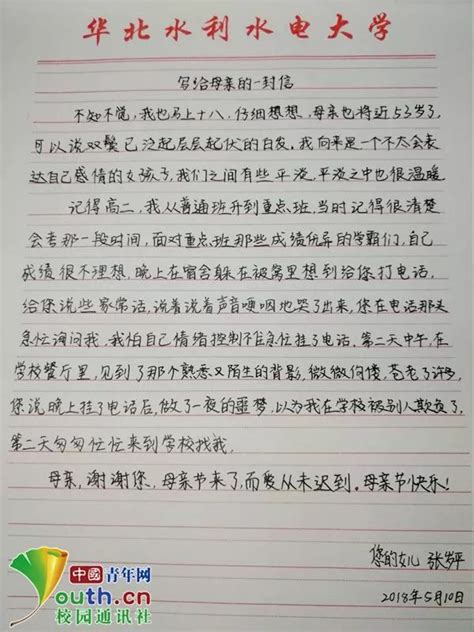 华北水利水电大学
写给母亲的一封信
不知不觉,我也马上十八,仔细想想,母亲也将近53岁了,
可以说双鬓已泛起层层起伏的白发。我向来是一个不太会表
达自己感情的女孩子,我们之间有些平淡,平淡之中也很温暖。
记得高二,我从普通班升到重点班,当时记得很清楚
会考那一段时间,面对重点班那些成绩优异的学霸们,自己
成绩很不理想,晚上在宿舍躲在被窝里想到给您打电话,
给您说些家常话,说着说着声音哽咽地哭了出来,您在电话那头
急忙询问我,我怕自己情绪控制不住急忙挂了电话。第二天中午,在
学校餐厅里,见到了那个熟悉又陌生的背影,微微佝偻,苍老了许多,
您说晚上挂了电话后,做了一夜的噩梦,以为我在学校被别人欺负了,
第二天匆匆忙忙来到学校找我。
母亲,谢谢您,母亲节来了,而爱从未迟到。母亲节快乐!
您的女儿 张 平
2018年5月10日
中国青年网
youth.cn
校园通讯社